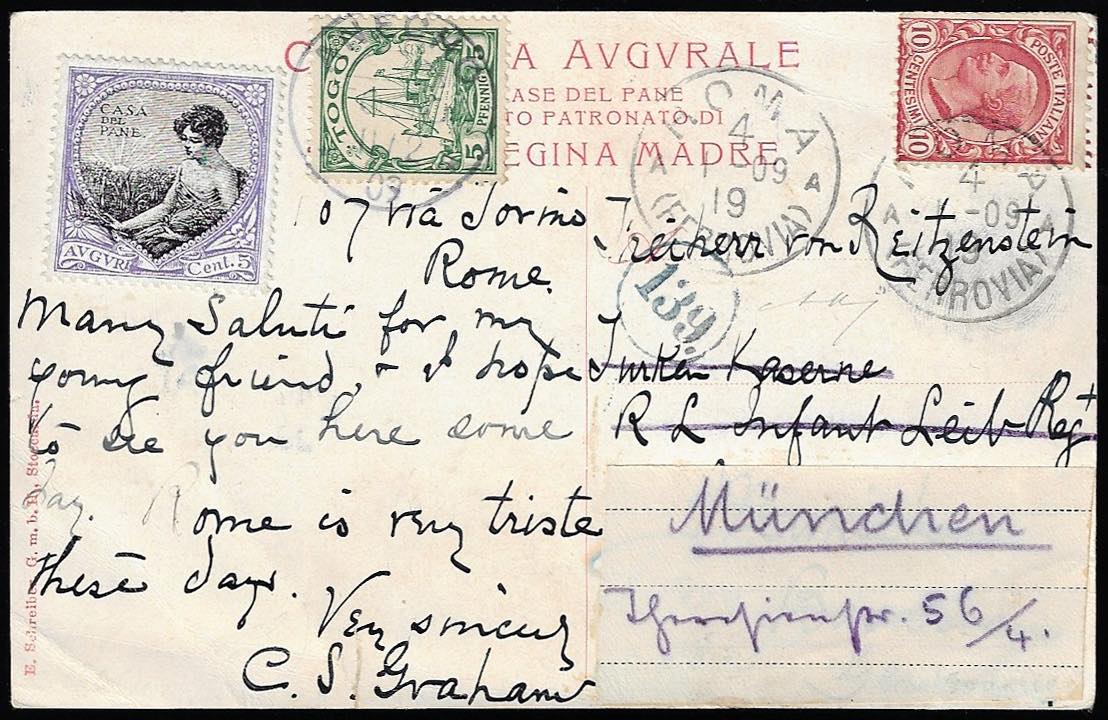 A AVGVRALE
ASE DEL PANE
TO PATRONATO DI
EGINA MADRE
CASA
DEL
PANE
AVGVR
Cent. 5
TOGO
5 PFENNIG 5
POSTE ITALIANE
10 CENTESIMI 10
ROMA
4
09
19
A A
(FERROVIA)
4
-09
(FERROVIA)
139.
07 via Torino
Rome.
Many Saluti for my
young friend, & I hope
to see you here some
day. Rome is very triste
these days.
Very sincerely
C. S. Graham
Freiherr von Reitzenstein
Türken Kaserne
R L Infant Leib Regt
München
Theresienstr. 56/4.
E. Schreiber G. m. b. H., Stoccarda.